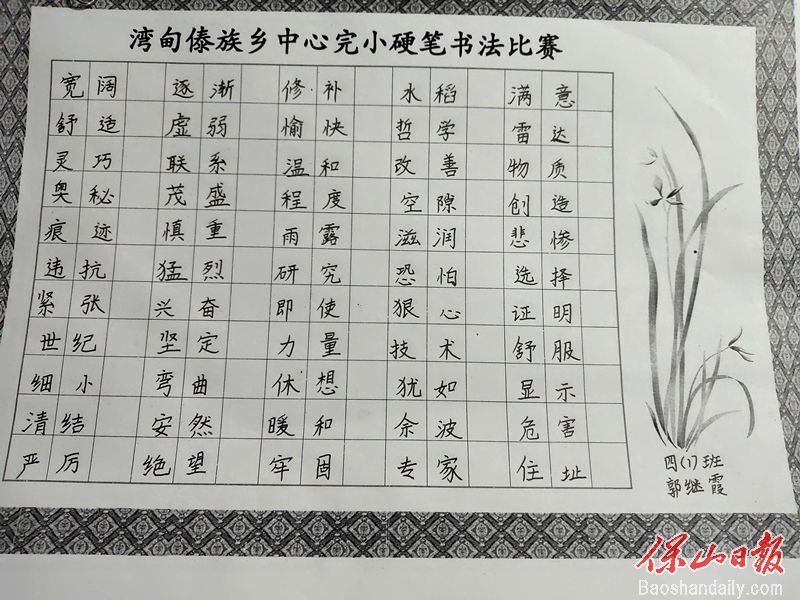 湾甸傣族乡中心完小硬笔书法比赛
宽阔 逐渐 修补 水稻 满意
舒适 虚弱 愉快 哲学 雷达
灵巧 联系 温和 改善 物质
奥秘 茂盛 程度 空隙 创造
痕迹 慎重 雨露 滋润 悲惨
违抗 猛烈 研究 恐怕 选择
紧张 兴奋 即使 狠心 证明
世纪 坚定 力量 技术 舒服
细小 弯曲 休想 犹如 显示
清结 安然 暖和 余波 危害
严厉 绝望 牢固 专家 住址
四(1)班
郭继霞
保山日报
Baoshandaily.com